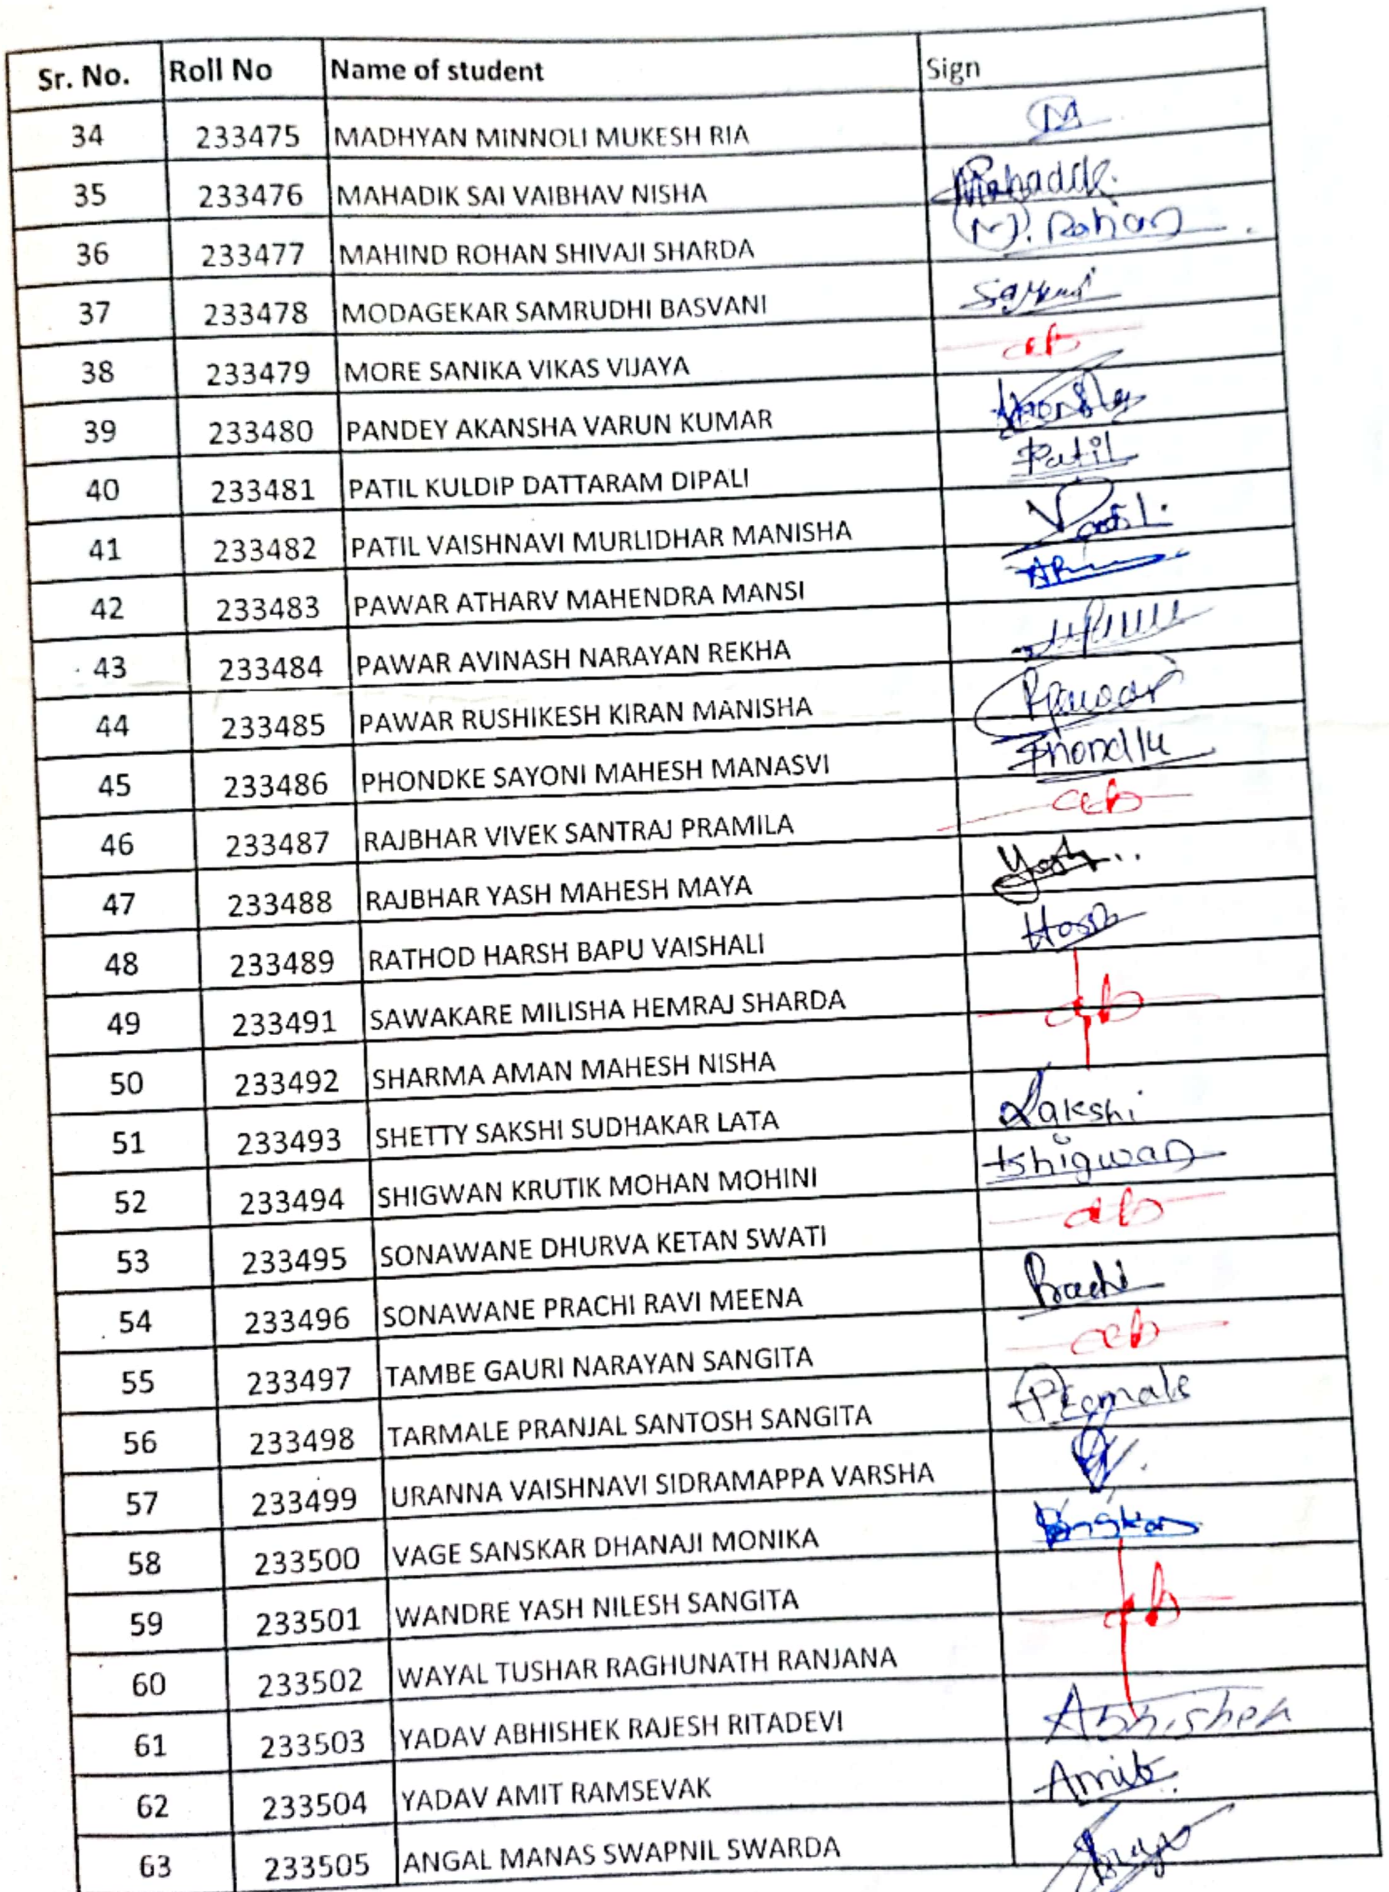 Sr. No. Roll No Name of student Sign
34 233475 MADHYAN MINNOLI MUKESH RIA M
35 233476 MAHADIK SAI VAIBHAV NISHA Mahadik.
36 233477 MAHIND ROHAN SHIVAJI SHARDA (M). Rohan
37 233478 MODAGEKAR SAMRUDHI BASVANI
38 233479 MORE SANIKA VIKAS VIJAYA ab
39 233480 PANDEY AKANSHA VARUN KUMAR
40 233481 PATIL KULDIP DATTARAM DIPALI Patil
41 233482 PATIL VAISHNAVI MURLIDHAR MANISHA
42 233483 PAWAR ATHARV MAHENDRA MANSI
43 233484 PAWAR AVINASH NARAYAN REKHA
44 233485 PAWAR RUSHIKESH KIRAN MANISHA
45 233486 PHONDKE SAYONI MAHESH MANASVI
46 233487 RAJBHAR VIVEK SANTRAJ PRAMILA ab
47 233488 RAJBHAR YASH MAHESH MAYA Yash..
48 233489 RATHOD HARSH BAPU VAISHALI
49 233491 SAWAKARE MILISHA HEMRAJ SHARDA ab
50 233492 SHARMA AMAN MAHESH NISHA
51 233493 SHETTY SAKSHI SUDHAKAR LATA Sakshi
52 233494 SHIGWAN KRUTIK MOHAN MOHINI kshigwan
53 233495 SONAWANE DHURVA KETAN SWATI ab
54 233496 SONAWANE PRACHI RAVI MEENA Prachi
55 233497 TAMBE GAURI NARAYAN SANGITA ab
56 233498 TARMALE PRANJAL SANTOSH SANGITA
57 233499 URANNA VAISHNAVI SIDRAMAPPA VARSHA
58 233500 VAGE SANSKAR DHANAJI MONIKA
59 233501 WANDRE YASH NILESH SANGITA ab
60 233502 WAYAL TUSHAR RAGHUNATH RANJANA
61 233503 YADAV ABHISHEK RAJESH RITADEVI Abhishek
62 233504 YADAV AMIT RAMSEVAK Amit
63 233505 ANGAL MANAS SWAPNIL SWARDA